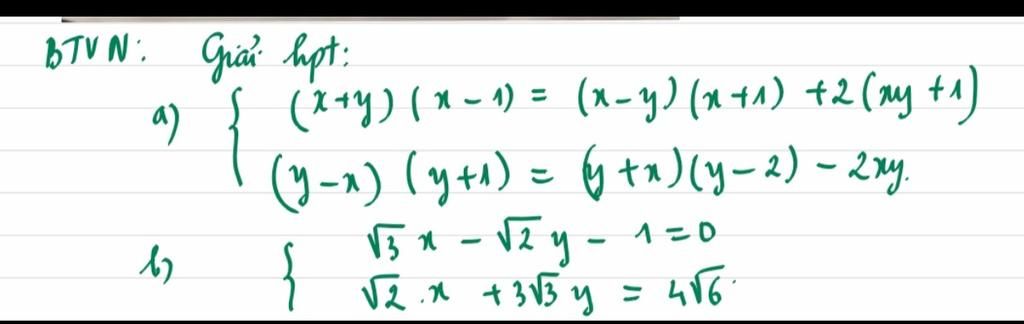 BTVN: Giải hpt:
a) { (x+y)(x-1) = (x-y)(x+1) +2(xy+1)
(y-x)(y+1) = (y+x)(y-2) - 2xy.
b) { √3 x - √2 y - 1 = 0
√2 . x + 3√3 y = 4√6.